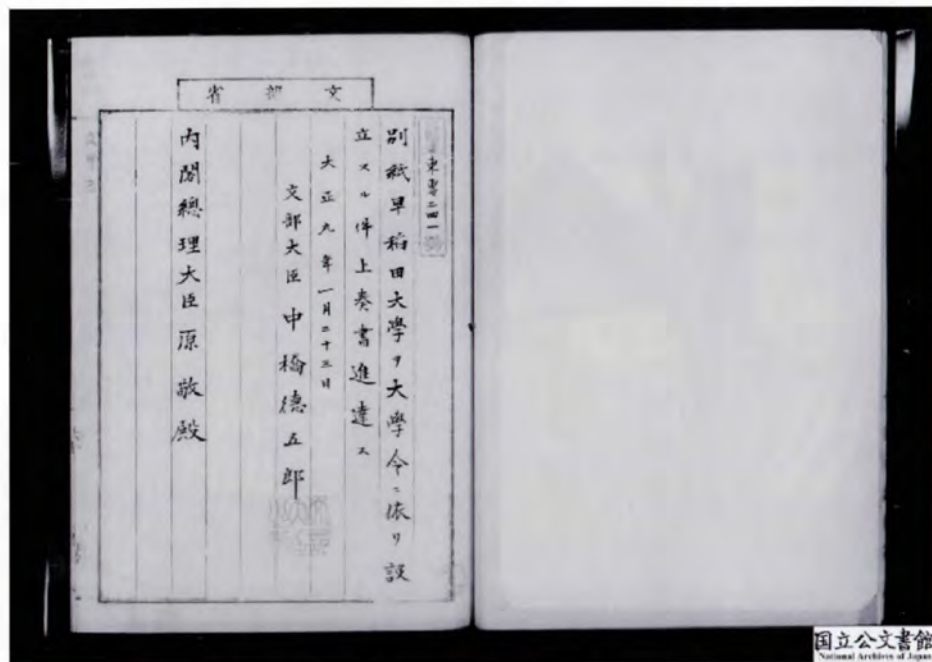 文部省
東専二四一號
別紙早稲田大學ヲ大學令ニ依リ設
立スル件上奏書進達ス
大正九年一月二十三日
文部大臣 中橋德五郎
内閣總理大臣 原敬殿
国立公文書館
National Archives of Japan